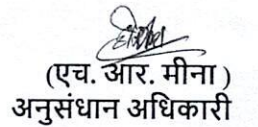 (एच. आर. मीना )
अनुसंधान अधिकारी